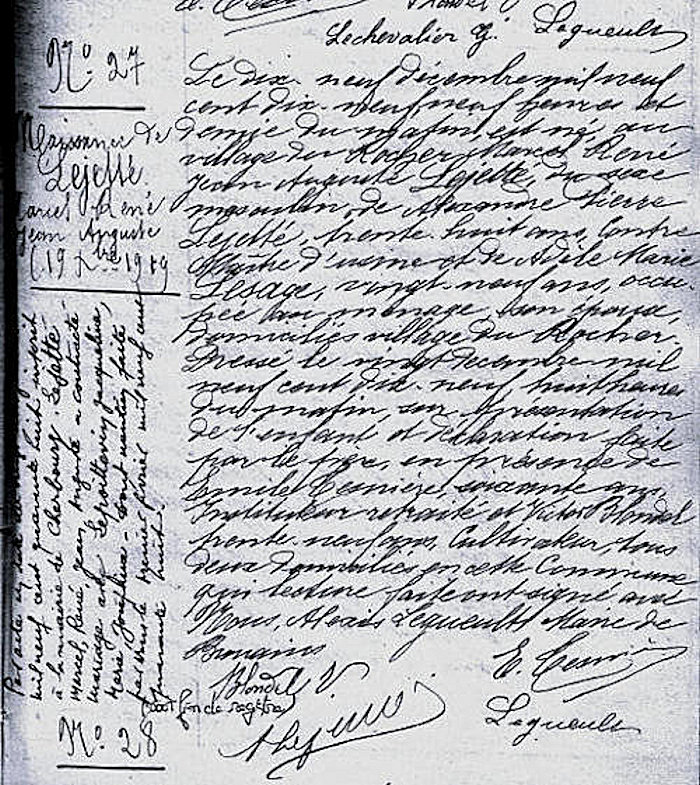 Lechevalier G. Legueult
No. 27
Naissance de
Lejetté
Marcel René
Jean Auguste
(19 Xbre 1919
Le dix-neuf décembre mil neuf
cent dix-neuf neuf heures et
demie du matin, est né, au
village du Rocher Marcel René
Jean Auguste Lejetté, du sexe
masculin, de Alexandre Pierre
Lejetté, trente-huit ans, Contre
Maître d'usine et de Adèle Marie
Lesage, vingt-neuf ans, occu
pée au ménage, son épouse
domiciliés village du Rocher.
Dressé le vingt décembre mil
neuf cent dix-neuf, huit heures
du matin, sur présentation
de l'enfant et déclaration faite
par le père, en présence de
Emile soixante ans,
Instituteur retraité et Victor Blondel
trente-neuf ans, Cultivateur, tous
deux domiciliés en cette Commune
qui lecture faite ont signé avec
Nous, Alexis Legueult Maire de
Blondel V
E.
Legueult
Par acte en date du
mil neuf cent quarante huit inscrit
à la mairie de Cherbourg, Lejetté
Marcel, René, Jean, Auguste a contracté
mariage avec Jacqueline,
Marie Joséphine
février mil neuf cent
quarante huit.
(voir fin de registre)
No. 28